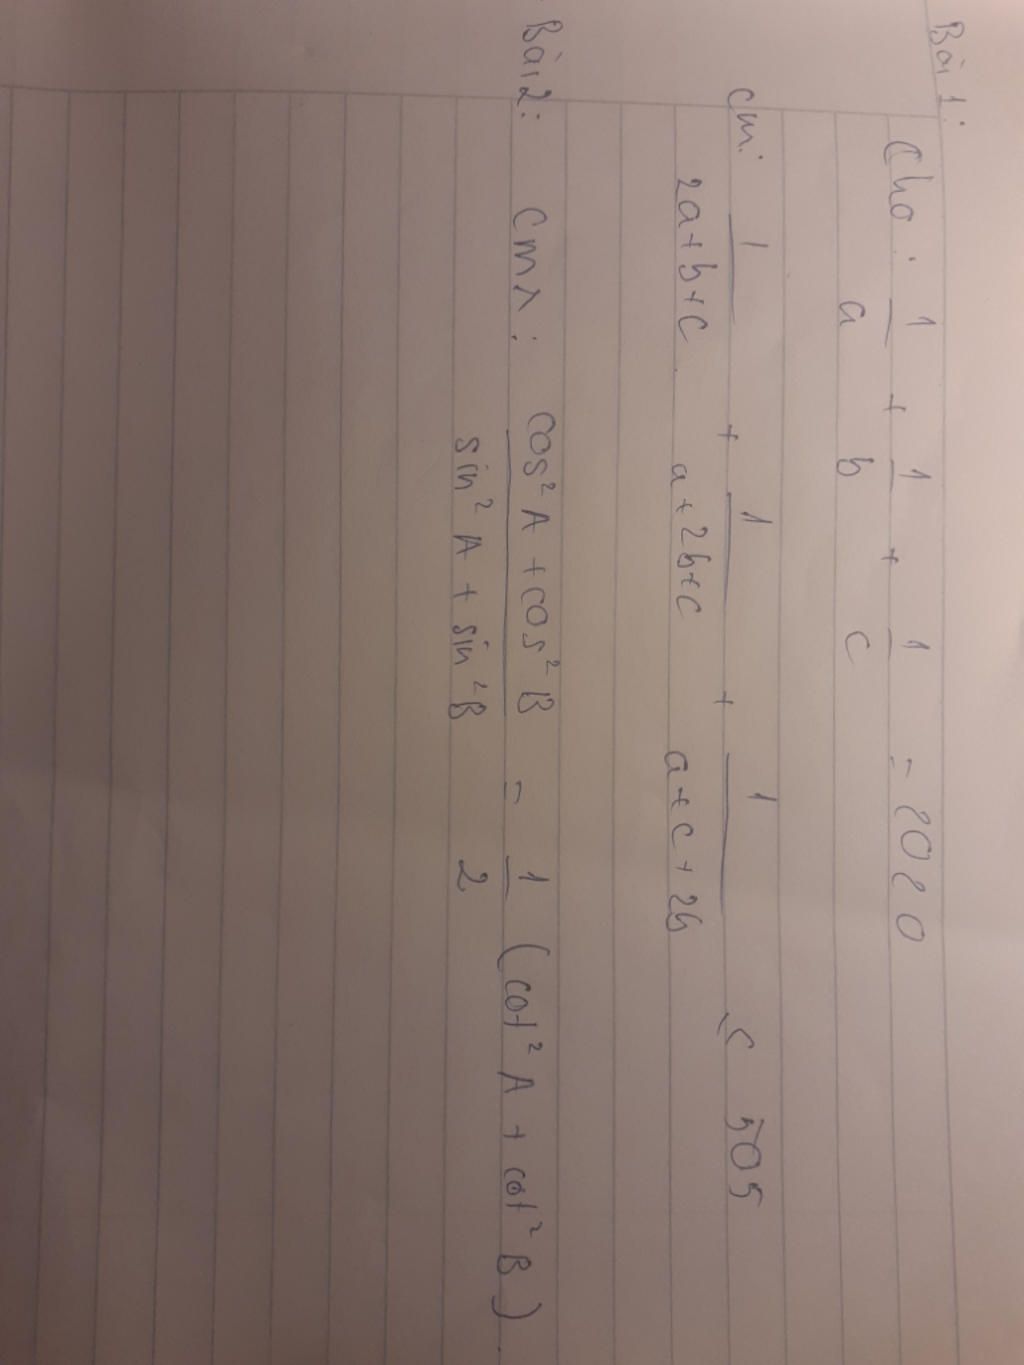 Bài 1:
Cho: 1/a + 1/b + 1/c = 2020
cm: 1/(2a+b+c) + 1/(a+2b+c) + 1/(a+c+2b) ≤ 505
Bài 2: cmr: (cos²A + cos²B)/(sin²A + sin²B) = 1/2 (cot²A + cot²B)